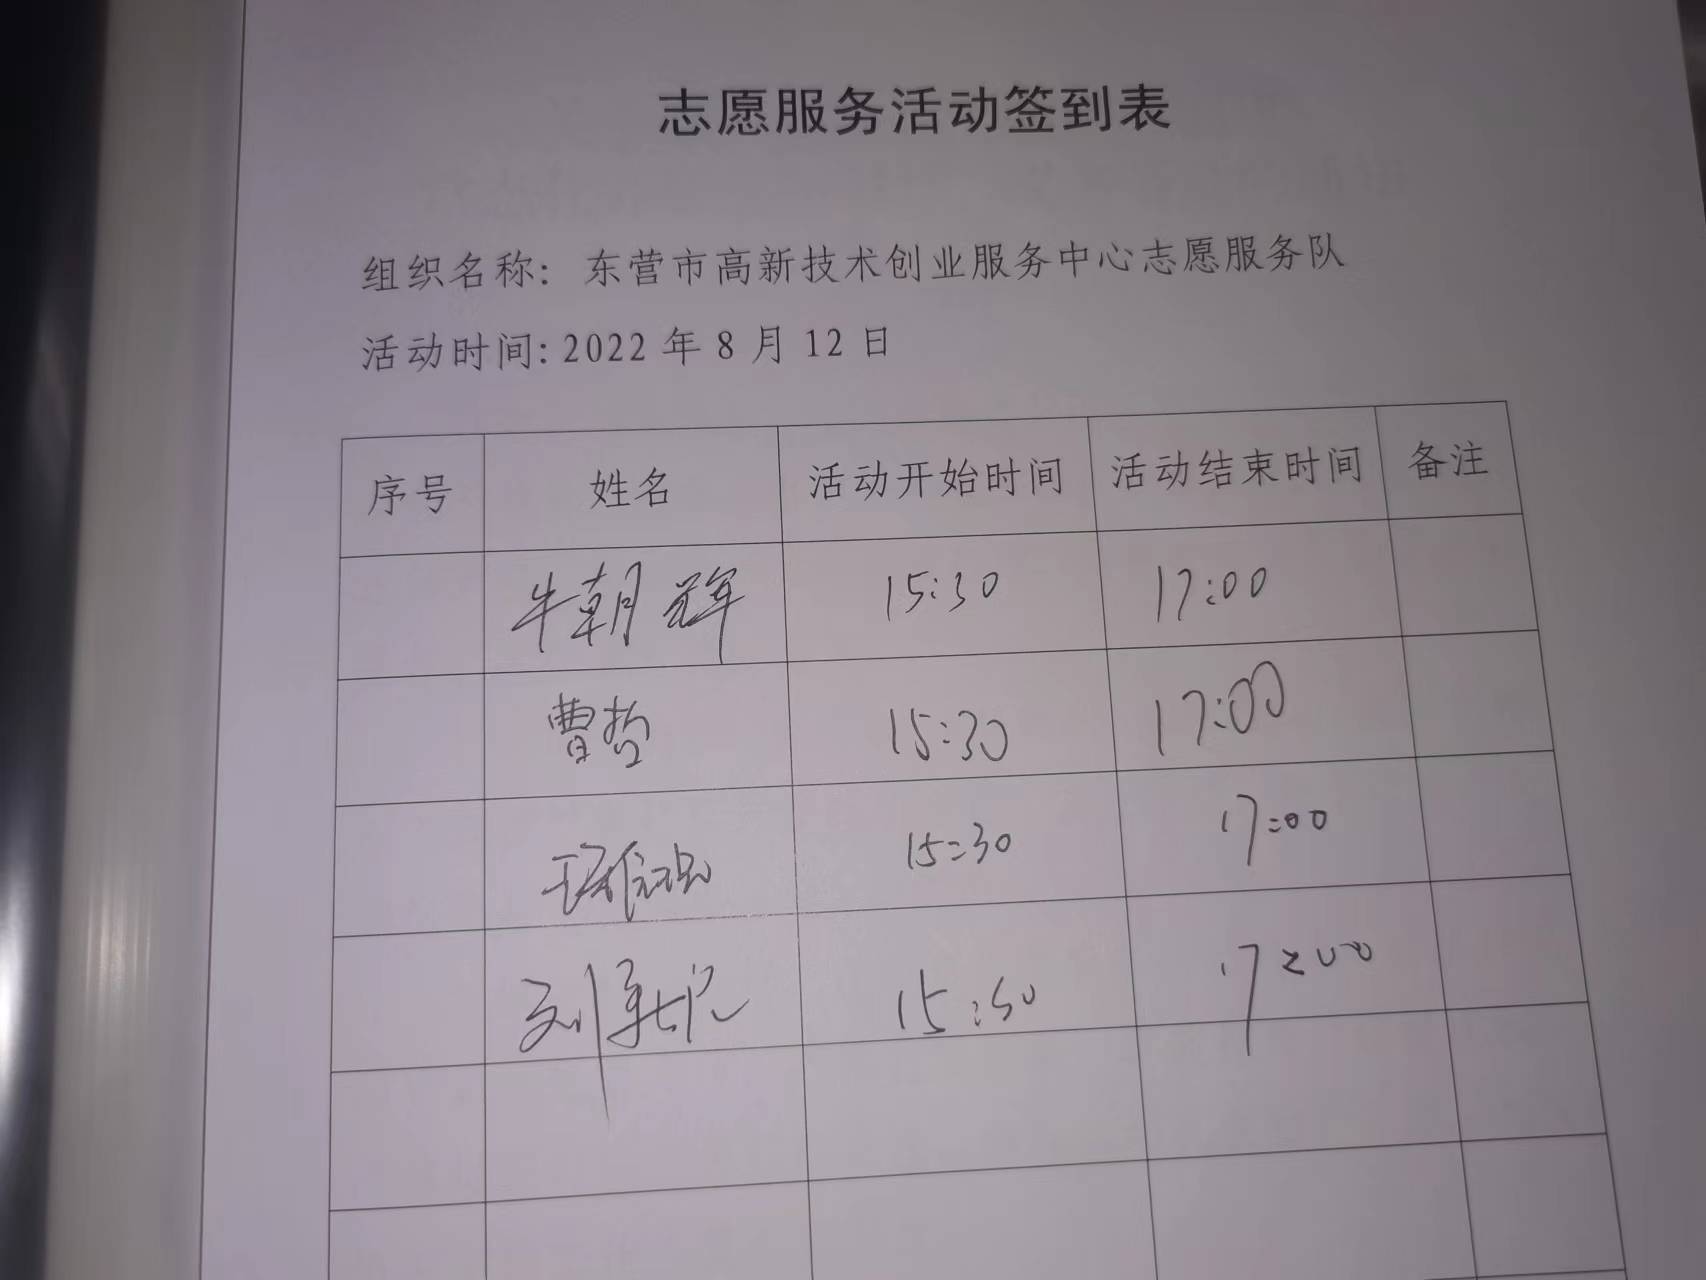 志愿服务活动签到表
组织名称：东营市高新技术创业服务中心志愿服务队
活动时间: 2022 年 8 月 12 日
序号 姓名 活动开始时间 活动结束时间 备注
牛朝辉 15:30 17:00
曹哲 15:30 17:00
15:30 17:00
刘 15:30 17:00